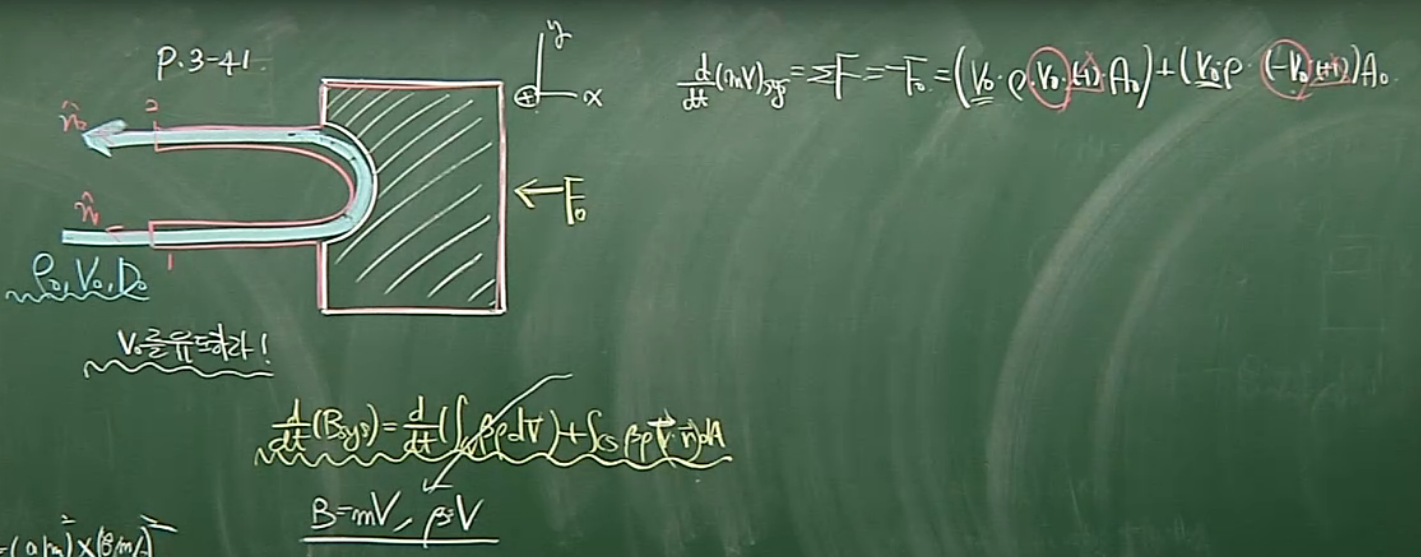 P.3-41.
y
x
2
n̂₂
n̂₁
1
F₀
ρ₀, V₀, D₀
V₀를 유도하라!
d/dt (mV)sys = ΣF = -F₀ = (V₀·ρ·V₀·(-1)·A₀) + (V₀·ρ·(-V₀·(+1))A₀
d/dt (Bsys) = d/dt (∫βρdV) + ∫cs βρ(V⃗·n⃗)dA
B=mV, β=V